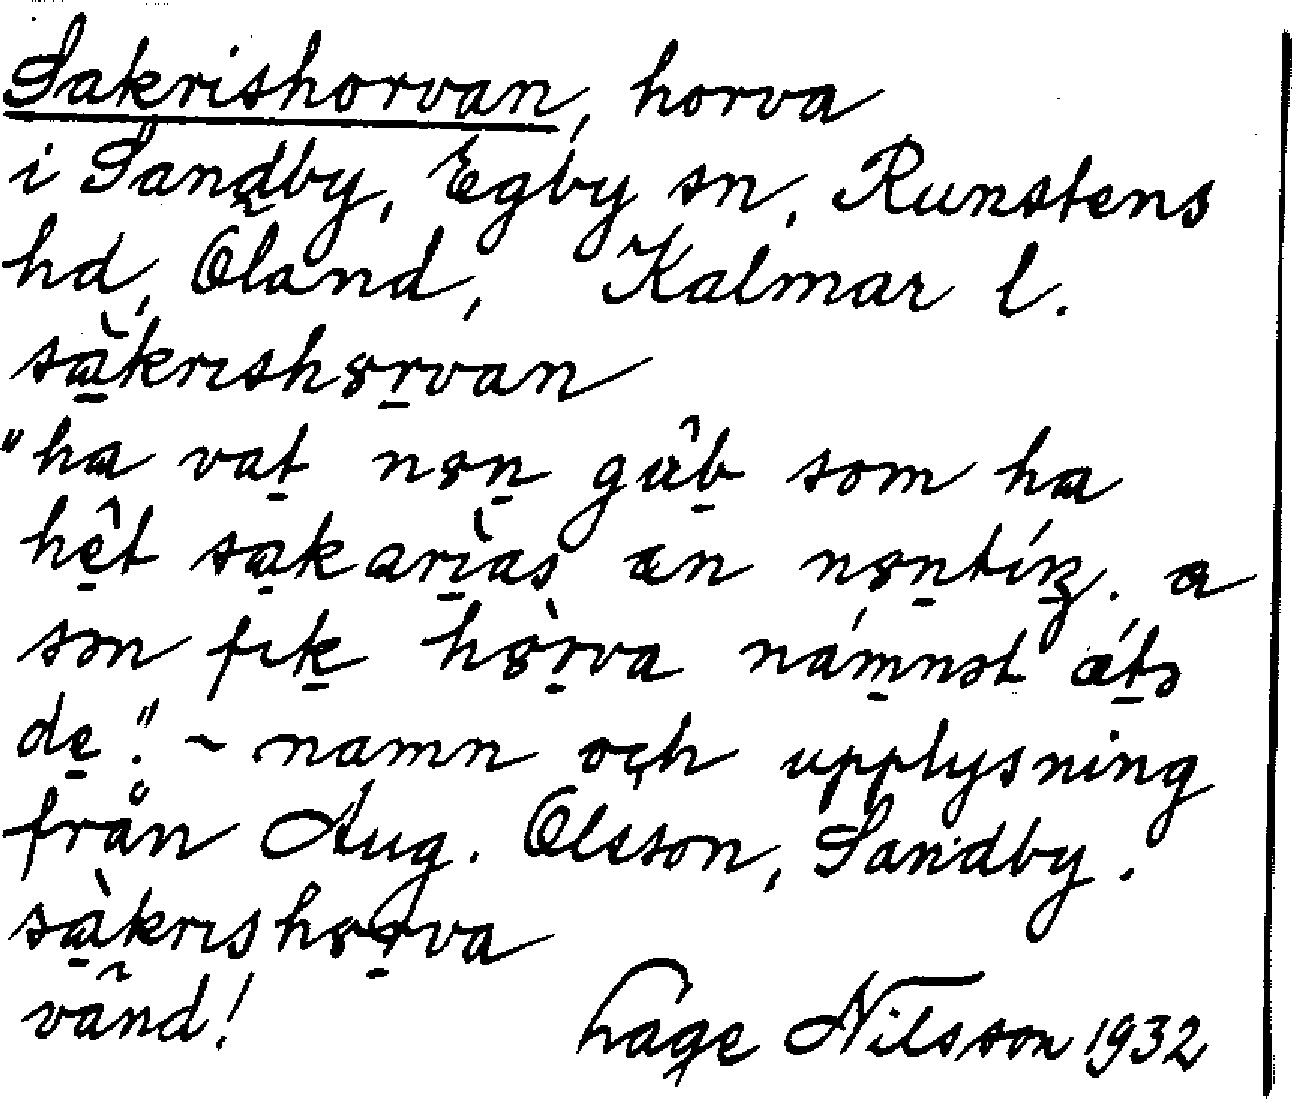 Sakrishorvan, horva
i Sandby, Egby sn, Runstens
hd, Öland, Kalmar l.
sà̱krıshꞷṟvan
"ha vaṯ nꞷṉ gûḇ som ha
hê̱t sa̱karı̱̀as an nꞷṉtíṉz. a
sən fıḵ hꞷ̀ṟva námṉəst ǽṯə
de̱." ~ namn och upplysning
från Aug. Olsson, Sandby.
sà̱krıshꞷṟva
vänd! Lage Nilsson 1932